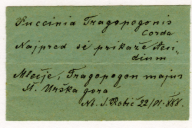 Puccinia Tragopogonis
Corda
Najpred se prikaže Aeci-
dium
Mleije, Tragopogon majus
St. Urška gora
Nt. S. Robič 22/VI. XXX.